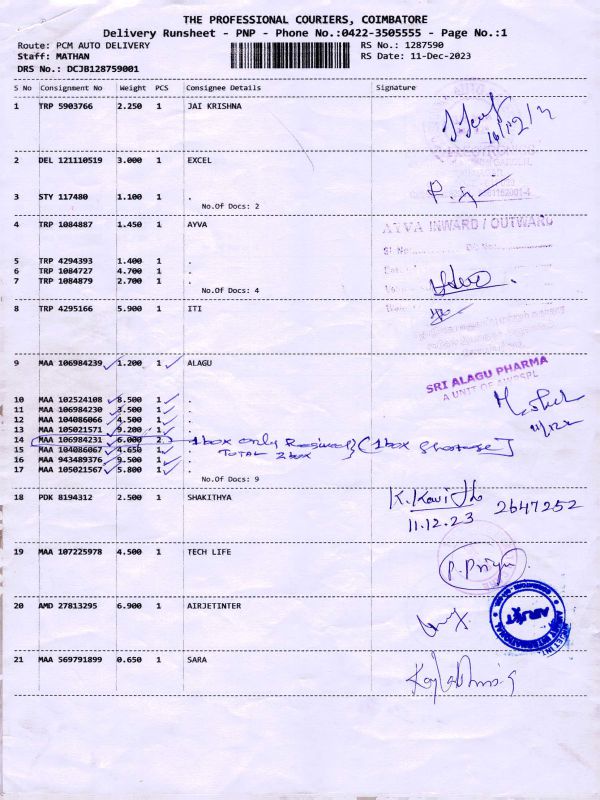 THE PROFESSIONAL COURIERS, COIMBATORE
Delivery Runsheet - PNP - Phone No.:0422-3505555 - Page No.:1
Route: PCM AUTO DELIVERY RS No.: 1287590
Staff: MATHAN RS Date: 11-Dec-2023
DRS No.: DCJB128759001
S No Consignment No Weight PCS Consignee Details Signature
1 TRP 5903766 2.250 1 JAI KRISHNA
2 DEL 121110519 3.000 1 EXCEL
3 STY 117480 1.100 1 .
No.Of Docs: 2
4 TRP 1084887 1.450 1 AYVA
AYVA INWARD / OUTWARD
5 TRP 4294393 1.400 1 .
6 TRP 1084727 4.700 1 .
7 TRP 1084879 2.700 1 .
No.Of Docs: 4
8 TRP 4295166 5.900 1 ITI
9 MAA 106984239 1.200 1 ALAGU
SRI ALAGU PHARMA
A UNIT OF AWOSPL
10 MAA 102524108 8.500 1 .
11 MAA 106984230 3.500 1 .
12 MAA 104086066 4.500 1 .
13 MAA 105021571 9.200 1 .
14 MAA 106984231 6.000 2 . 1box only Received (1box shortage]
15 MAA 104086067 4.650 1 . TOTAL 2box
16 MAA 943489376 9.500 1 .
17 MAA 105021567 5.800 1 .
No.Of Docs: 9
18 PDK 8194312 2.500 1 SHAKITHYA K. Kavitha 2647252
11.12.23
19 MAA 107225978 4.500 1 TECH LIFE P. Priya
20 AMD 27813295 6.900 1 AIRJETINTER
21 MAA 569791899 0.650 1 SARA